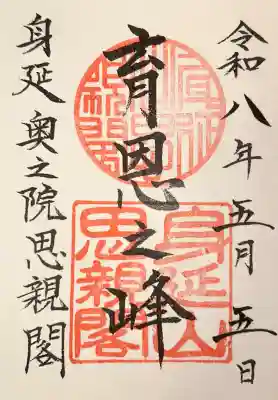 令和八年五月五日
育恩之峰
身延奥之院思親閣
身延山
思親閣